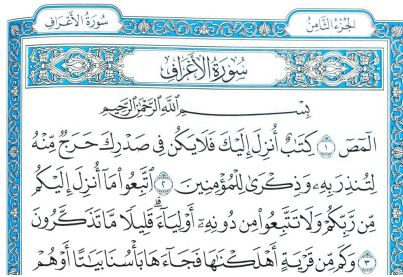 الجزء الثامن سورة الأعراف
سورة الأعراف
بسم الله الرحمن الرحيم
الٓمٓصٓ ١ كِتَٰبٌ أُنزِلَ إِلَيۡكَ فَلَا يَكُن فِي صَدۡرِكَ حَرَجٞ مِّنۡهُ
لِتُنذِرَ بِهِۦ وَذِكۡرَىٰ لِلۡمُؤۡمِنِينَ ٢ ٱتَّبِعُواْ مَآ أُنزِلَ إِلَيۡكُم
مِّن رَّبِّكُمۡ وَلَا تَتَّبِعُواْ مِن دُونِهِۦٓ أَوۡلِيَآءَۗ قَلِيلٗا مَّا تَذَكَّرُونَ
٣ وَكَم مِّن قَرۡيَةٍ أَهۡلَكۡنَٰهَا فَجَآءَهَا بَأۡسُنَا بَيَٰتًا أَوۡ هُمۡ